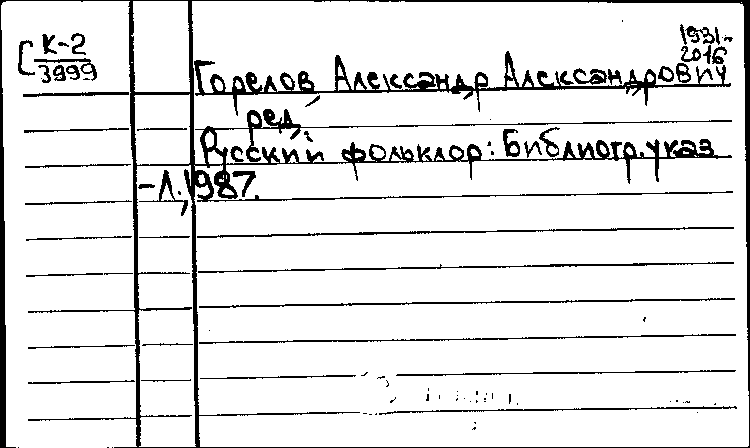 [К-2
3999
1931-
2016
Горелов, Александр Александрович
ред.
Русский фольклор: Библиогр. указ
-Л., 1987.